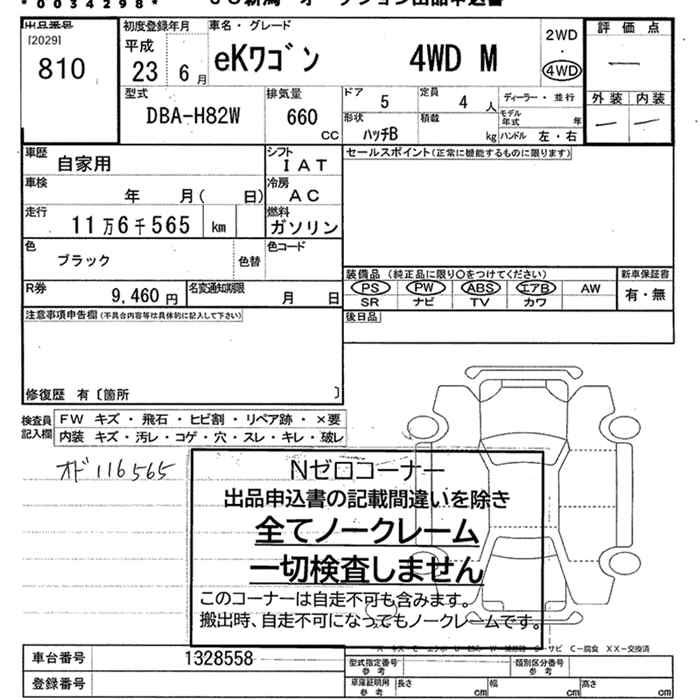 *0034298*
出品番号
[2029]
810
初度登録年月
平成
23 6月
車名・グレード
eKワゴン 4WD M
2WD
・
4WD
評価点
―
外装 内装
― ―
型式
DBA-H82W
排気量
660
CC
ドア 5
定員 4人
ディーラー・並行
形状 ハッチB
積載 kg
モデル年式 年
ハンドル 左・右
車歴 自家用
シフト IAT
セールスポイント(正常に機能するものに限ります)
車検 年 月( 日)
冷房 AC
走行 11万6千565 km
燃料 ガソリン
色 ブラック
色替
色コード
装備品(純正品に限り○をつけてください)
新車保証書
PS PW ABS エアB AW
有・無
R券 9,460円
名変通知期限 月 日
SR ナビ TV カワ
注意事項申告欄(不具合内容等は具体的に記入して下さい)
後日品
修復歴 有〔箇所 〕
検査員記入欄
FW キズ・飛石・ヒビ割・リペア跡・×要
内装 キズ・汚レ・コゲ・穴・スレ・キレ・破レ
オド116565
Nゼロコーナー
出品申込書の記載間違いを除き
全てノークレーム
一切検査しません
このコーナーは自走不可も含みます。
搬出時、自走不可になってもノークレームです。
サビ C―腐食 XX―交換済
車台番号 1328558
型式指定番号 参考
類別区分番号 参考
登録番号
車庫証明用 参考
長さ cm 幅 cm 高さ cm